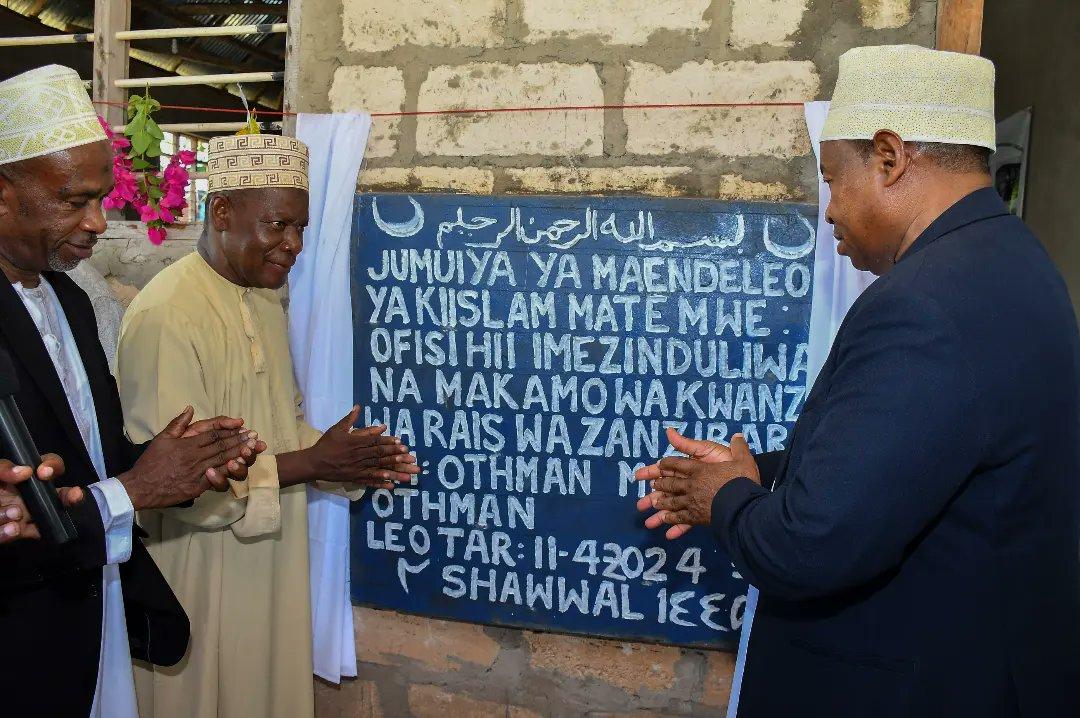 بسم الله الرحمن الرحيم
JUMUIYA YA MAENDELEO
YA KIISLAM MATEMWE :
OFISI HII IMEZINDULIWA
NA MAKAMO WA KWANZ
WA RAIS WA ZANZIBAR
: OTHMAN M
OTHMAN
LEO TAR: 11-4-2024
٢ SHAWWAL ١٤٤٥